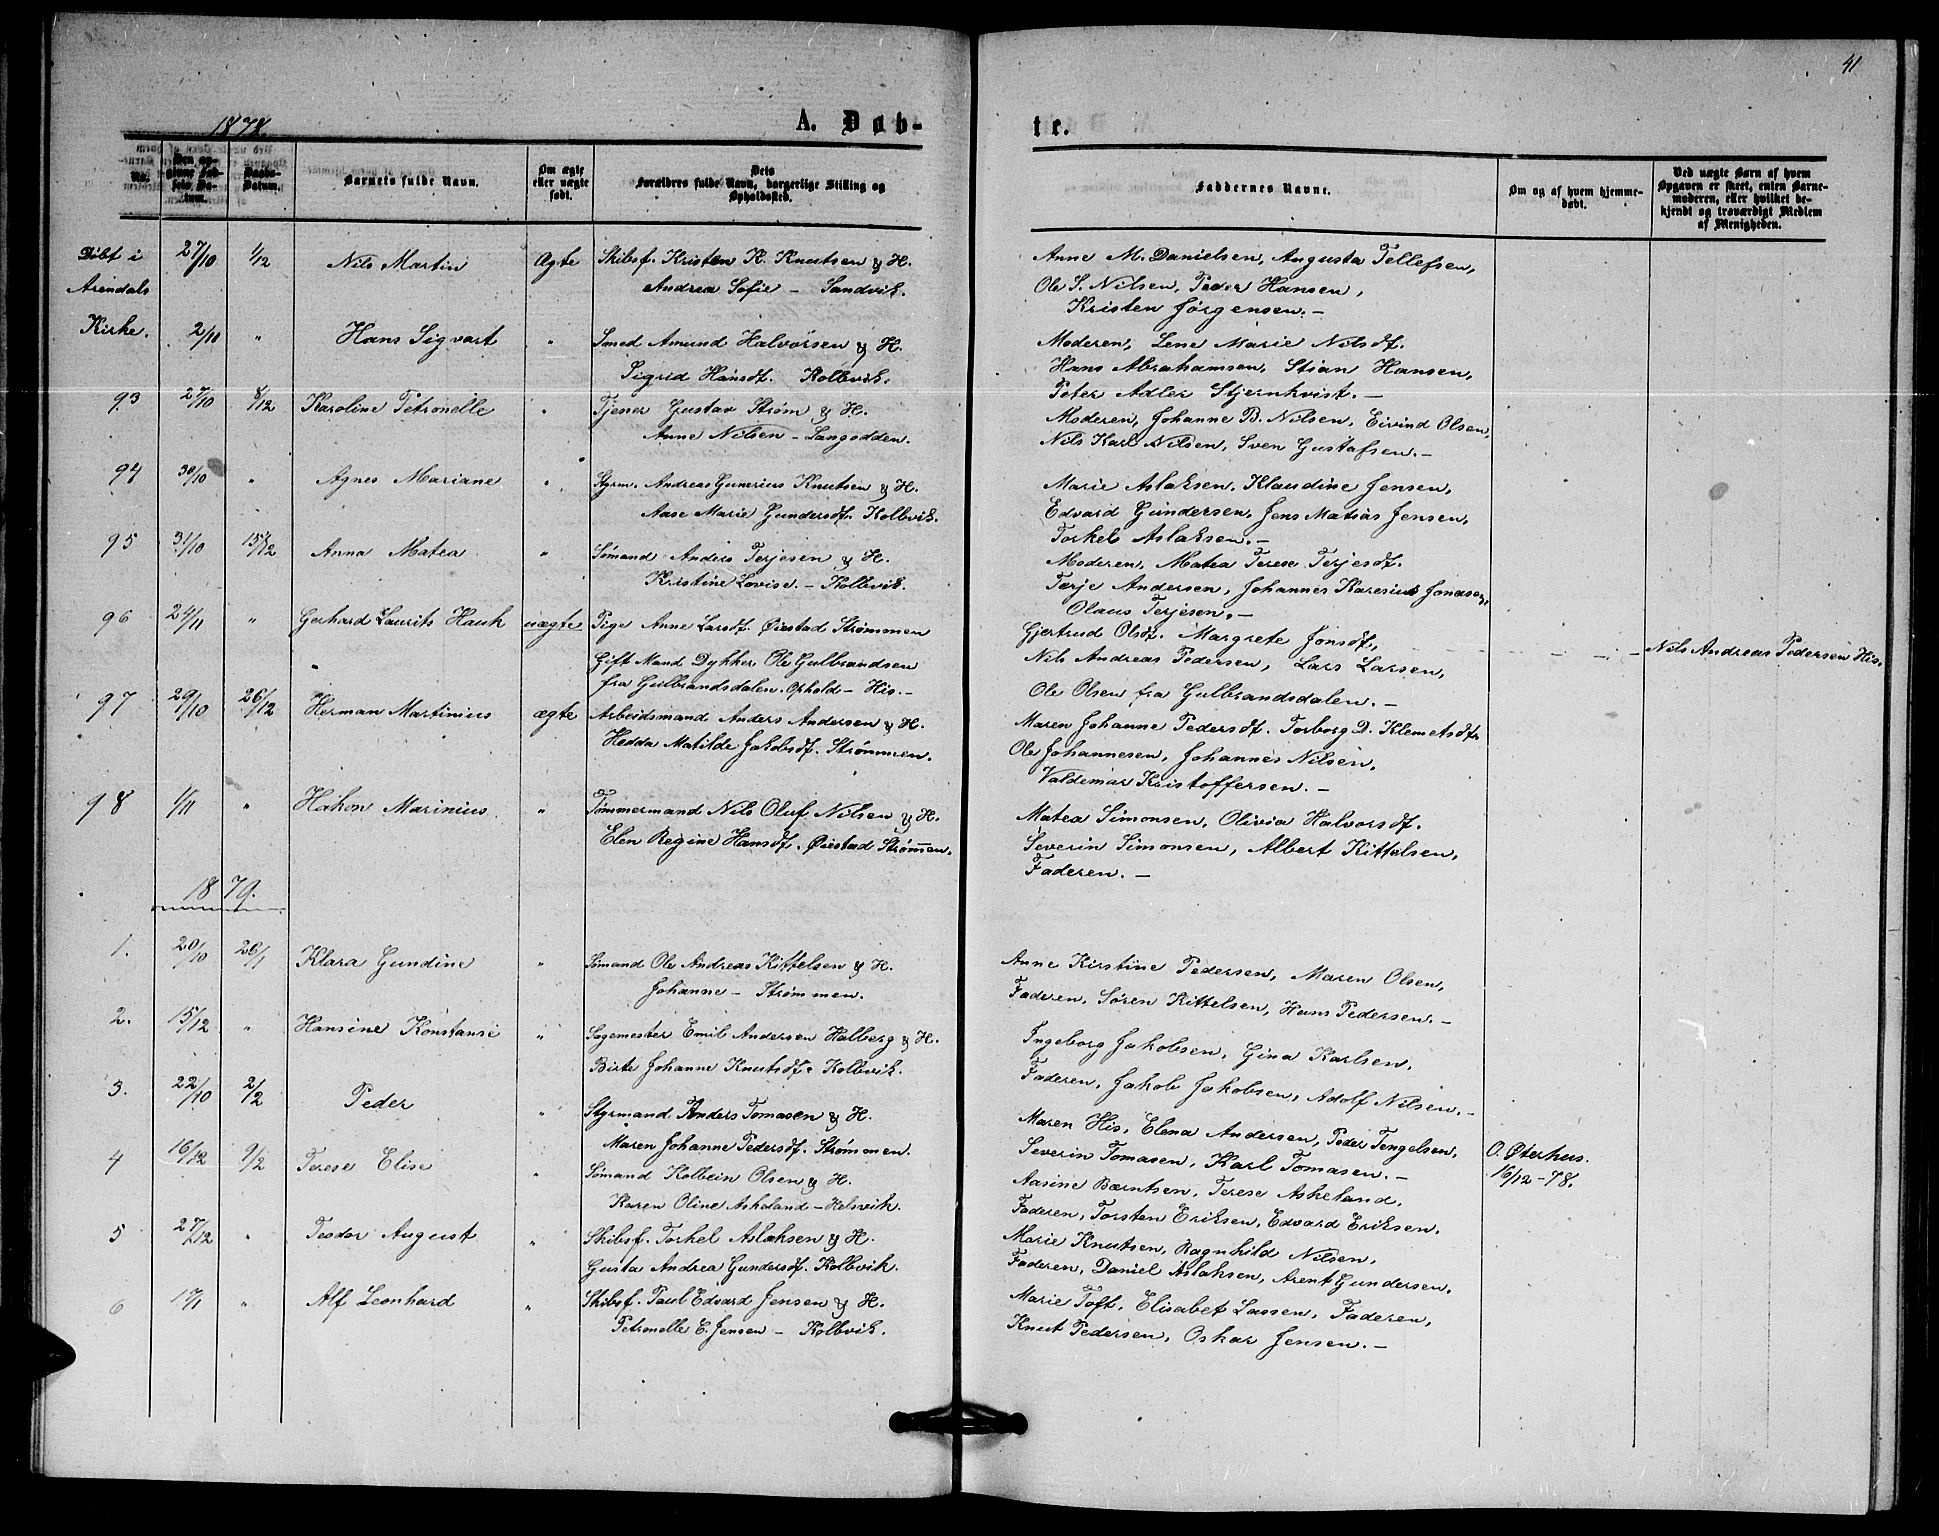 41
1878.
A. Døb-
te.
No.
Den op-
givne Fød-
sels Da-
tum.
Daabs-
Datum.
Barnets fulde Navn.
Om ægte
eller uægte
født.
Dets
Forældres fulde Navn, borgerlige Stilling og
Opholdssted.
Faddernes Navne.
Om og af hvem hjemme-
døbt.
Ved uægte Børn af hvem
Opgaven er skeet, enten Barne-
moderen, eller hvilket be-
kjendt og troværdigt Medlem
af Menigheden.
Döbt i 27/10 1/12 Nils Martin Ægte Skibsf. Kristen K. Knutsen & H.
Arendals Andrea Sofie – Sandvik.
Anne M. Danielsen, Augusta Tellefsen,
Ole S. Nilsen, Peder Hansen,
Kristen Jörgensen. –
Kirke. 2/10 " Hans Sigvart " Smed Amund Halvorsen & H.
Sigrid Hansdf. Kolbvik.
Moderen, Lene Marie Nilsdf.
Hans Abrahamsen, Stian Hansen,
Peter Adler Stjernkvist. –
93 27/10 8/12 Karoline Petronelle " Tjener Gustav Strøm & H.
Anne Nilsen – Langodden.
Moderen, Johanne B. Nilsen, Eivind Olsen,
Nils Karl Nilsen, Sven Gustafsen. –
94 30/10 " Agnes Mariane " Styrm. Andreas Gunerius Knutsen & H.
Aase Marie Gundersdf. Kolbvik.
Marie Aslaksen, Klaudine Jensen,
Edvard Gundersen, Jens Matias Jensen,
Torkel Aslaksen. –
95 31/10 15/12 Anna Matea " Sømand Anders Terjesen & H.
Kristine Lovise. – Kolbvik.
Moderen, Matea Terese Terjesdf.
Terje Andersen, Johannes Karenius Jonasen,
Olaus Terjesen. –
96 24/11 " Gerhard Laurits Hauk uægte Pige Anne Larsdf. Øiestad Strømmen
Gift Mand Dykker Ole Gulbrandsen
fra Gulbrandsdalen. Ophold – His. –
Gjertrud Olsdf. Margrete Jonsdf.,
Nils Andreas Pedersen, Lars Larsen,
Ole Olsen fra Gulbrandsdalen. –
Nils Andreas Pedersen His.
97 29/10 26/12 Herman Martinius ægte Arbeidsmand Anders Andersen & H.
Hedda Matilde Jakobsdf. Strømmen.
Maren Johanne Pedersdf. Torborg D. Klemetsdf.
Ole Johannesen, Johannes Nilsen,
Valdemar Kristoffersen. –
98 1/11 " Håkon Marinius " Tømmermand Nils Oluf Nilsen & H.
Elen Regine Hansdf. Øiestad Strømen.
Matea Simonsen, Olivia Halvorsdf.
Severin Simonsen, Albert Kittelsen,
Faderen. –
1879.
1. 20/10 26/1 Klara Gundine " Sømand Ole Andreas Kittelsen & H.
Johanne – Strømmen.
Anne Kirstine Pedersen, Maren Olsen,
Faderen, Sören Kittelsen, Hans Pedersen. –
2. 15/12 " Hansine Konstansi " Sagemester Emil Andersen Halberg & H.
Birte Johanne Knutsdf. Kolbvik.
Ingeborg Jakobsen, Gina Karlsen,
Faderen, Jakob Jakobsen, Adolf Nilsen. –
3. 22/10 2/2 Peder " Styrmand Anders Tomasen & H.
Maren Johanne Pedersdf. Strømmen.
Maren His, Elena Andersen, Peder Tengelsen,
Severin Tomasen, Karl Tomasen. –
4 16/12 9/2 Terese Elise " Sømand Kolbein Olsen & H.
Karen Oline Askeland – Helsvik.
Aasine Bærntsen, Terese Askeland,
Faderen, Torsten Eriksen, Edvard Eriksen.
O. Østerhus.
16/12 – 78.
5 27/12 " Teodor August " Skibsf. Torkel Aslaksen & H.
Gusta Andrea Gundersdf. Kolbvik.
Marie Knutsen, Ragnhild Nilsen,
Faderen, Daniel Aslaksen, Arent Gundersen.
6 17/1 " Alf Leonhard " Skibsf. Paul Edvard Jensen & H.
Petronelle E. Jensen – Kolbvik.
Marie Toft, Elisabet Lassen, Faderen,
Knut Pedersen, Oskar Jensen. –